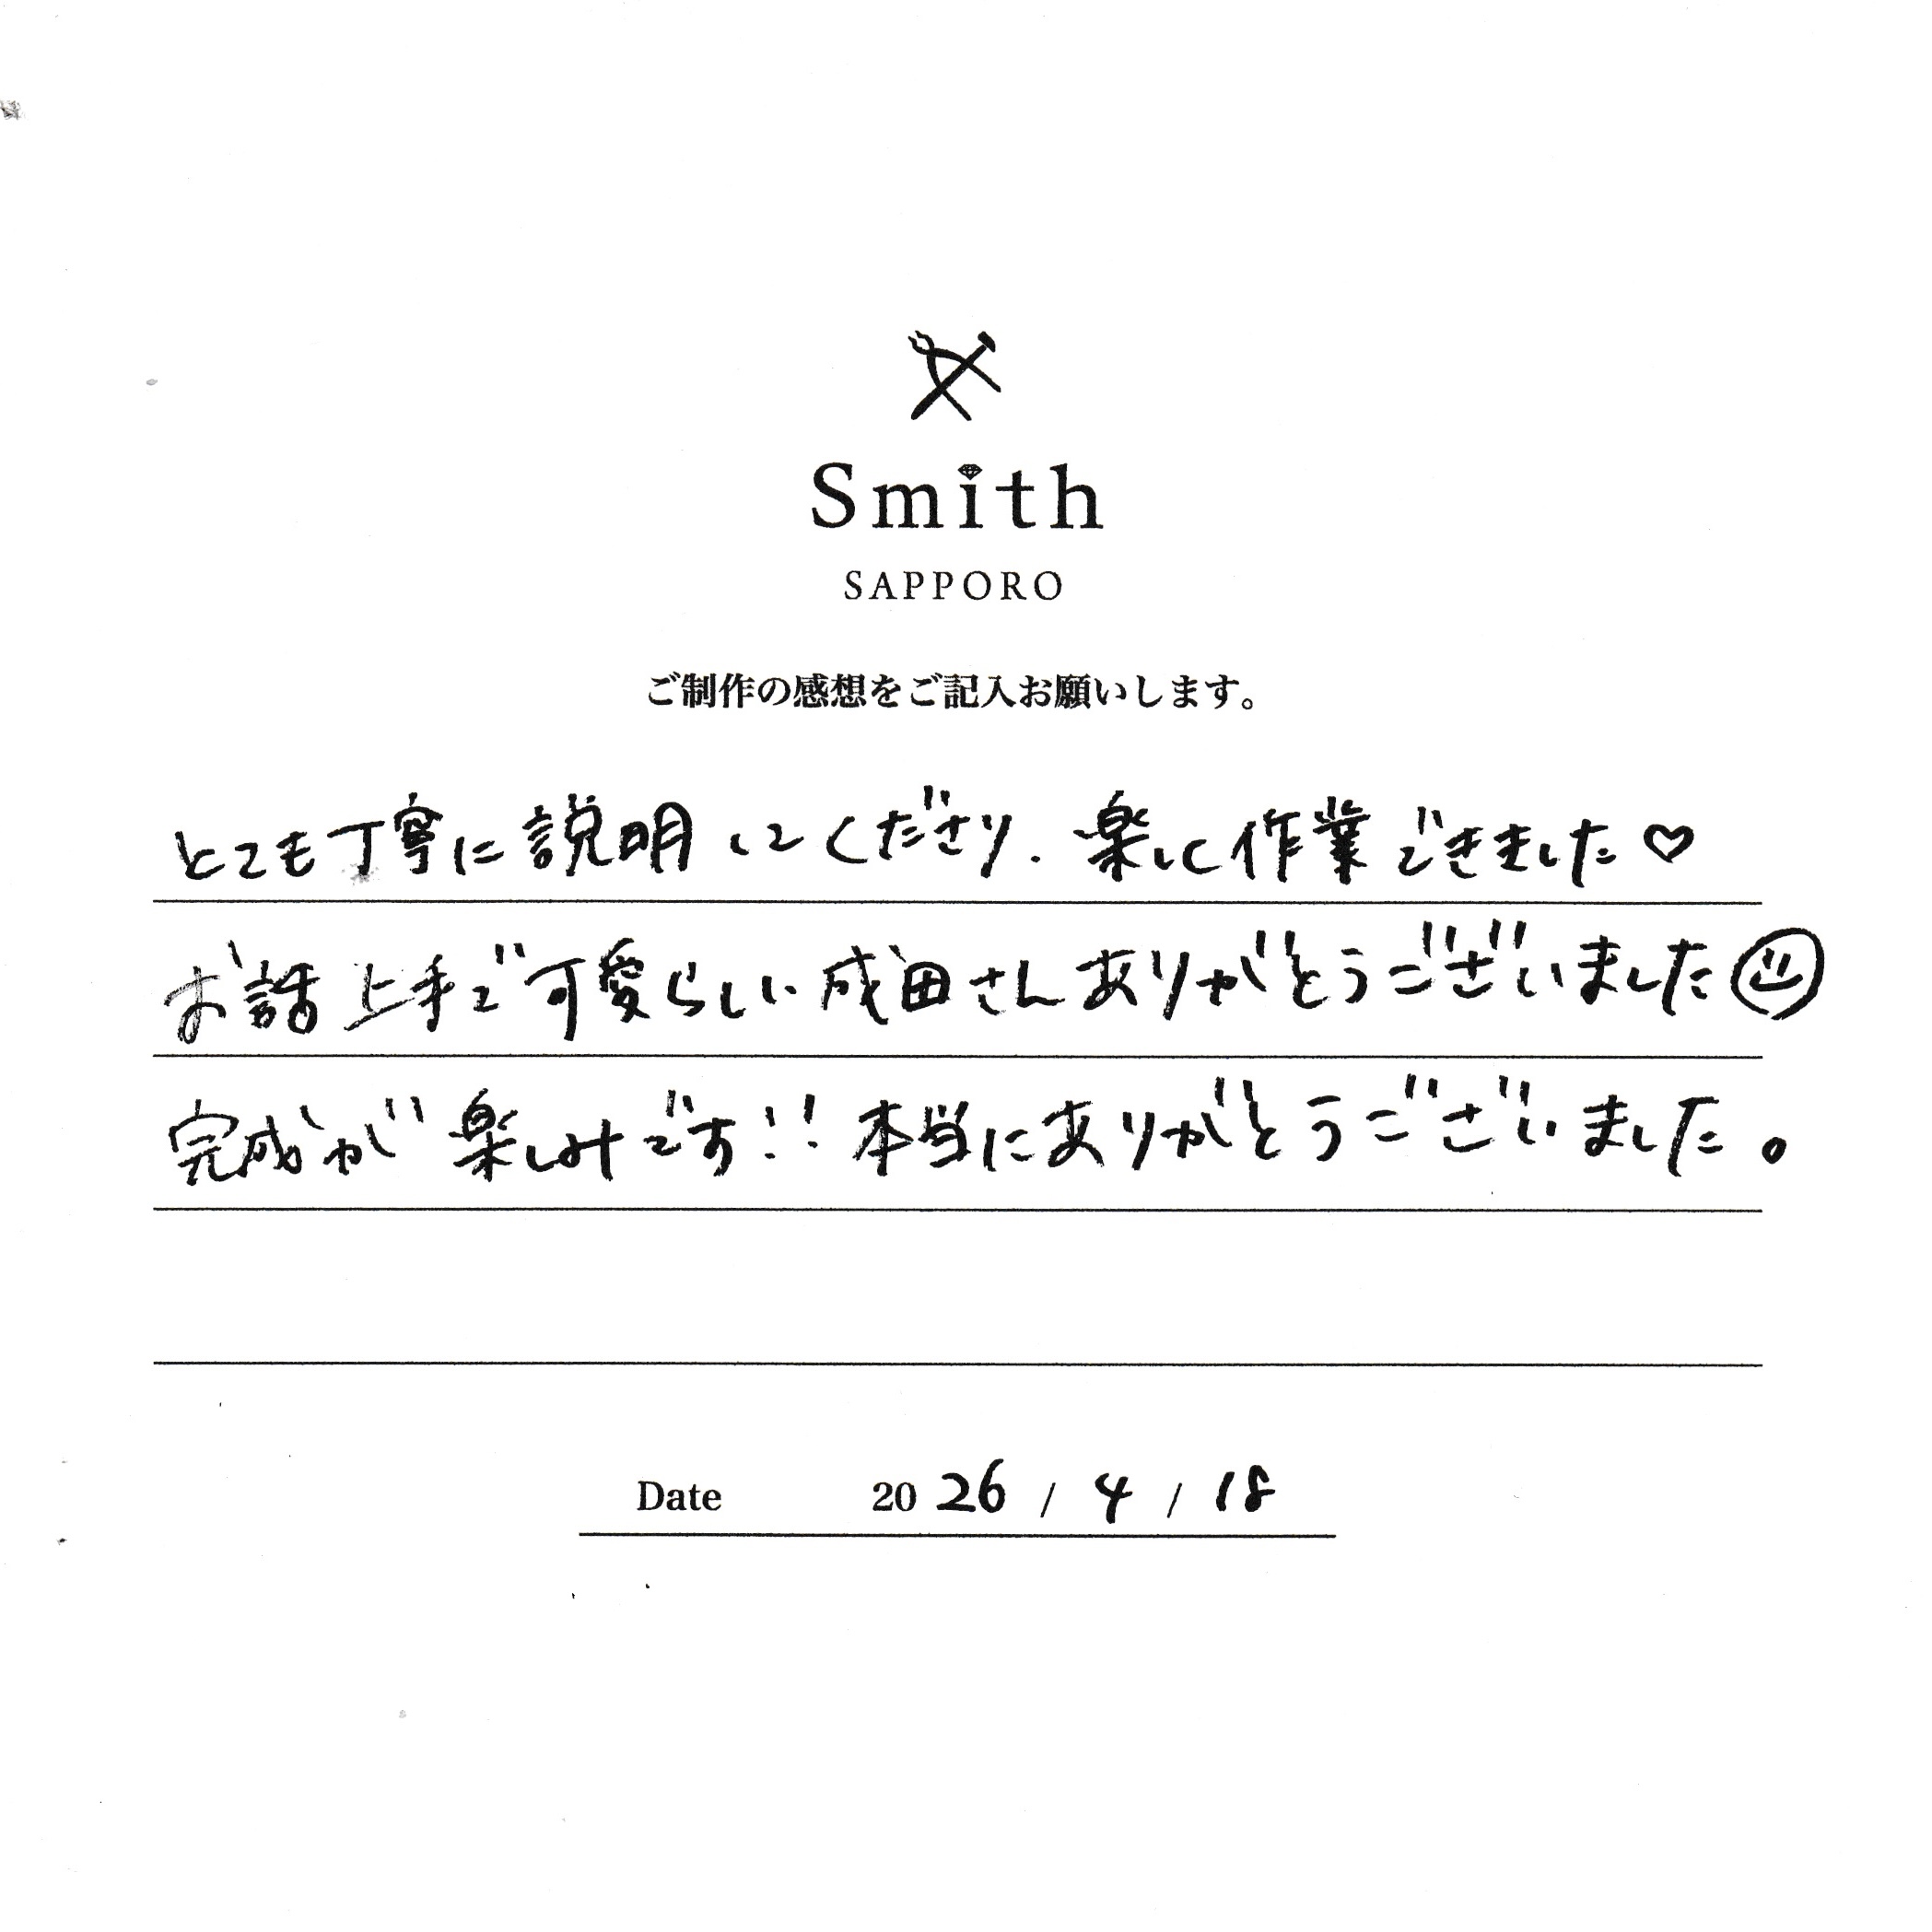 Smith
SAPPORO
ご制作の感想をご記入お願いします。
とても丁寧に説明してくださり、楽しく作業できました♡
お話上手で可愛らしい成田さんありがとうございました☺
完成が楽しみです!! 本当にありがとうございました。
Date 2026 / 4 / 18